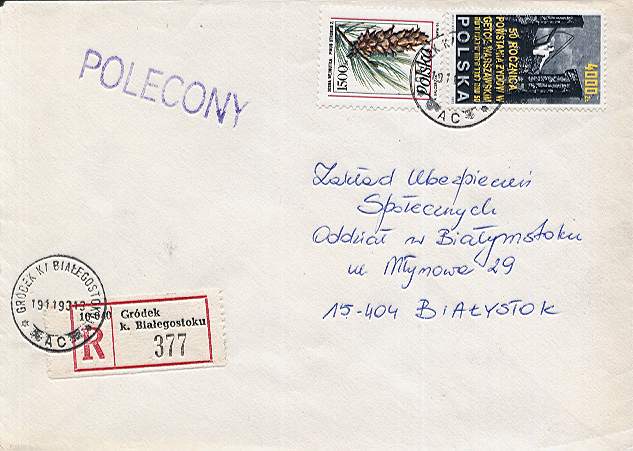 POLECONY
1500zł
polska
50 ROCZNICA
POWSTANIA ŻYDÓW W
GETCIE WARSZAWSKIM
POLSKA
4000zł
AC
Zakład Ubezpieczeń
Społecznych
Oddział w Białymstoku
ul Młynowa 29
15-404 BIAŁYSTOK
GRÓDEK K/BIAŁEGOSTOKU
AC
16-040 Gródek
k. Białegostoku
R 377